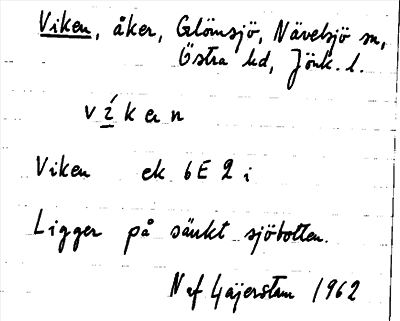 Viken, åker, Glömsjö, Nävelsjö sn,
Östra hd, Jönk. l.
v í k e n
Viken ek 6E 2 i
Ligger på sänkt sjöbotten.
N af Gajerstam 1962